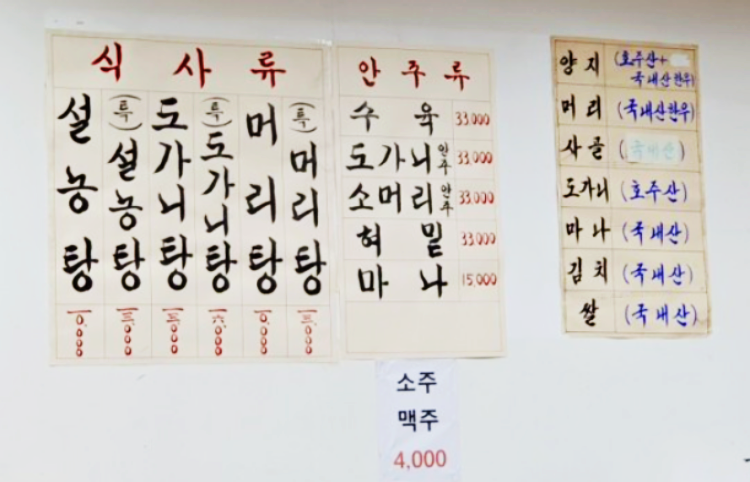 식사류
설농탕
一0,000
(특)설농탕
一三,000
도가니탕
一三,000
(특)도가니탕
一六,000
머리탕
一0,000
(특)머리탕
一三,000
안주류
수육 33,000
도가니 안주 33,000
소머리 안주 33,000
혀밑 33,000
마나 15,000
소주
맥주
4,000
양지 (호주산+
국내산한우)
머리 (국내산한우)
사골 (국내산)
도가니 (호주산)
마나 (국내산)
김치 (국내산)
쌀 (국내산)